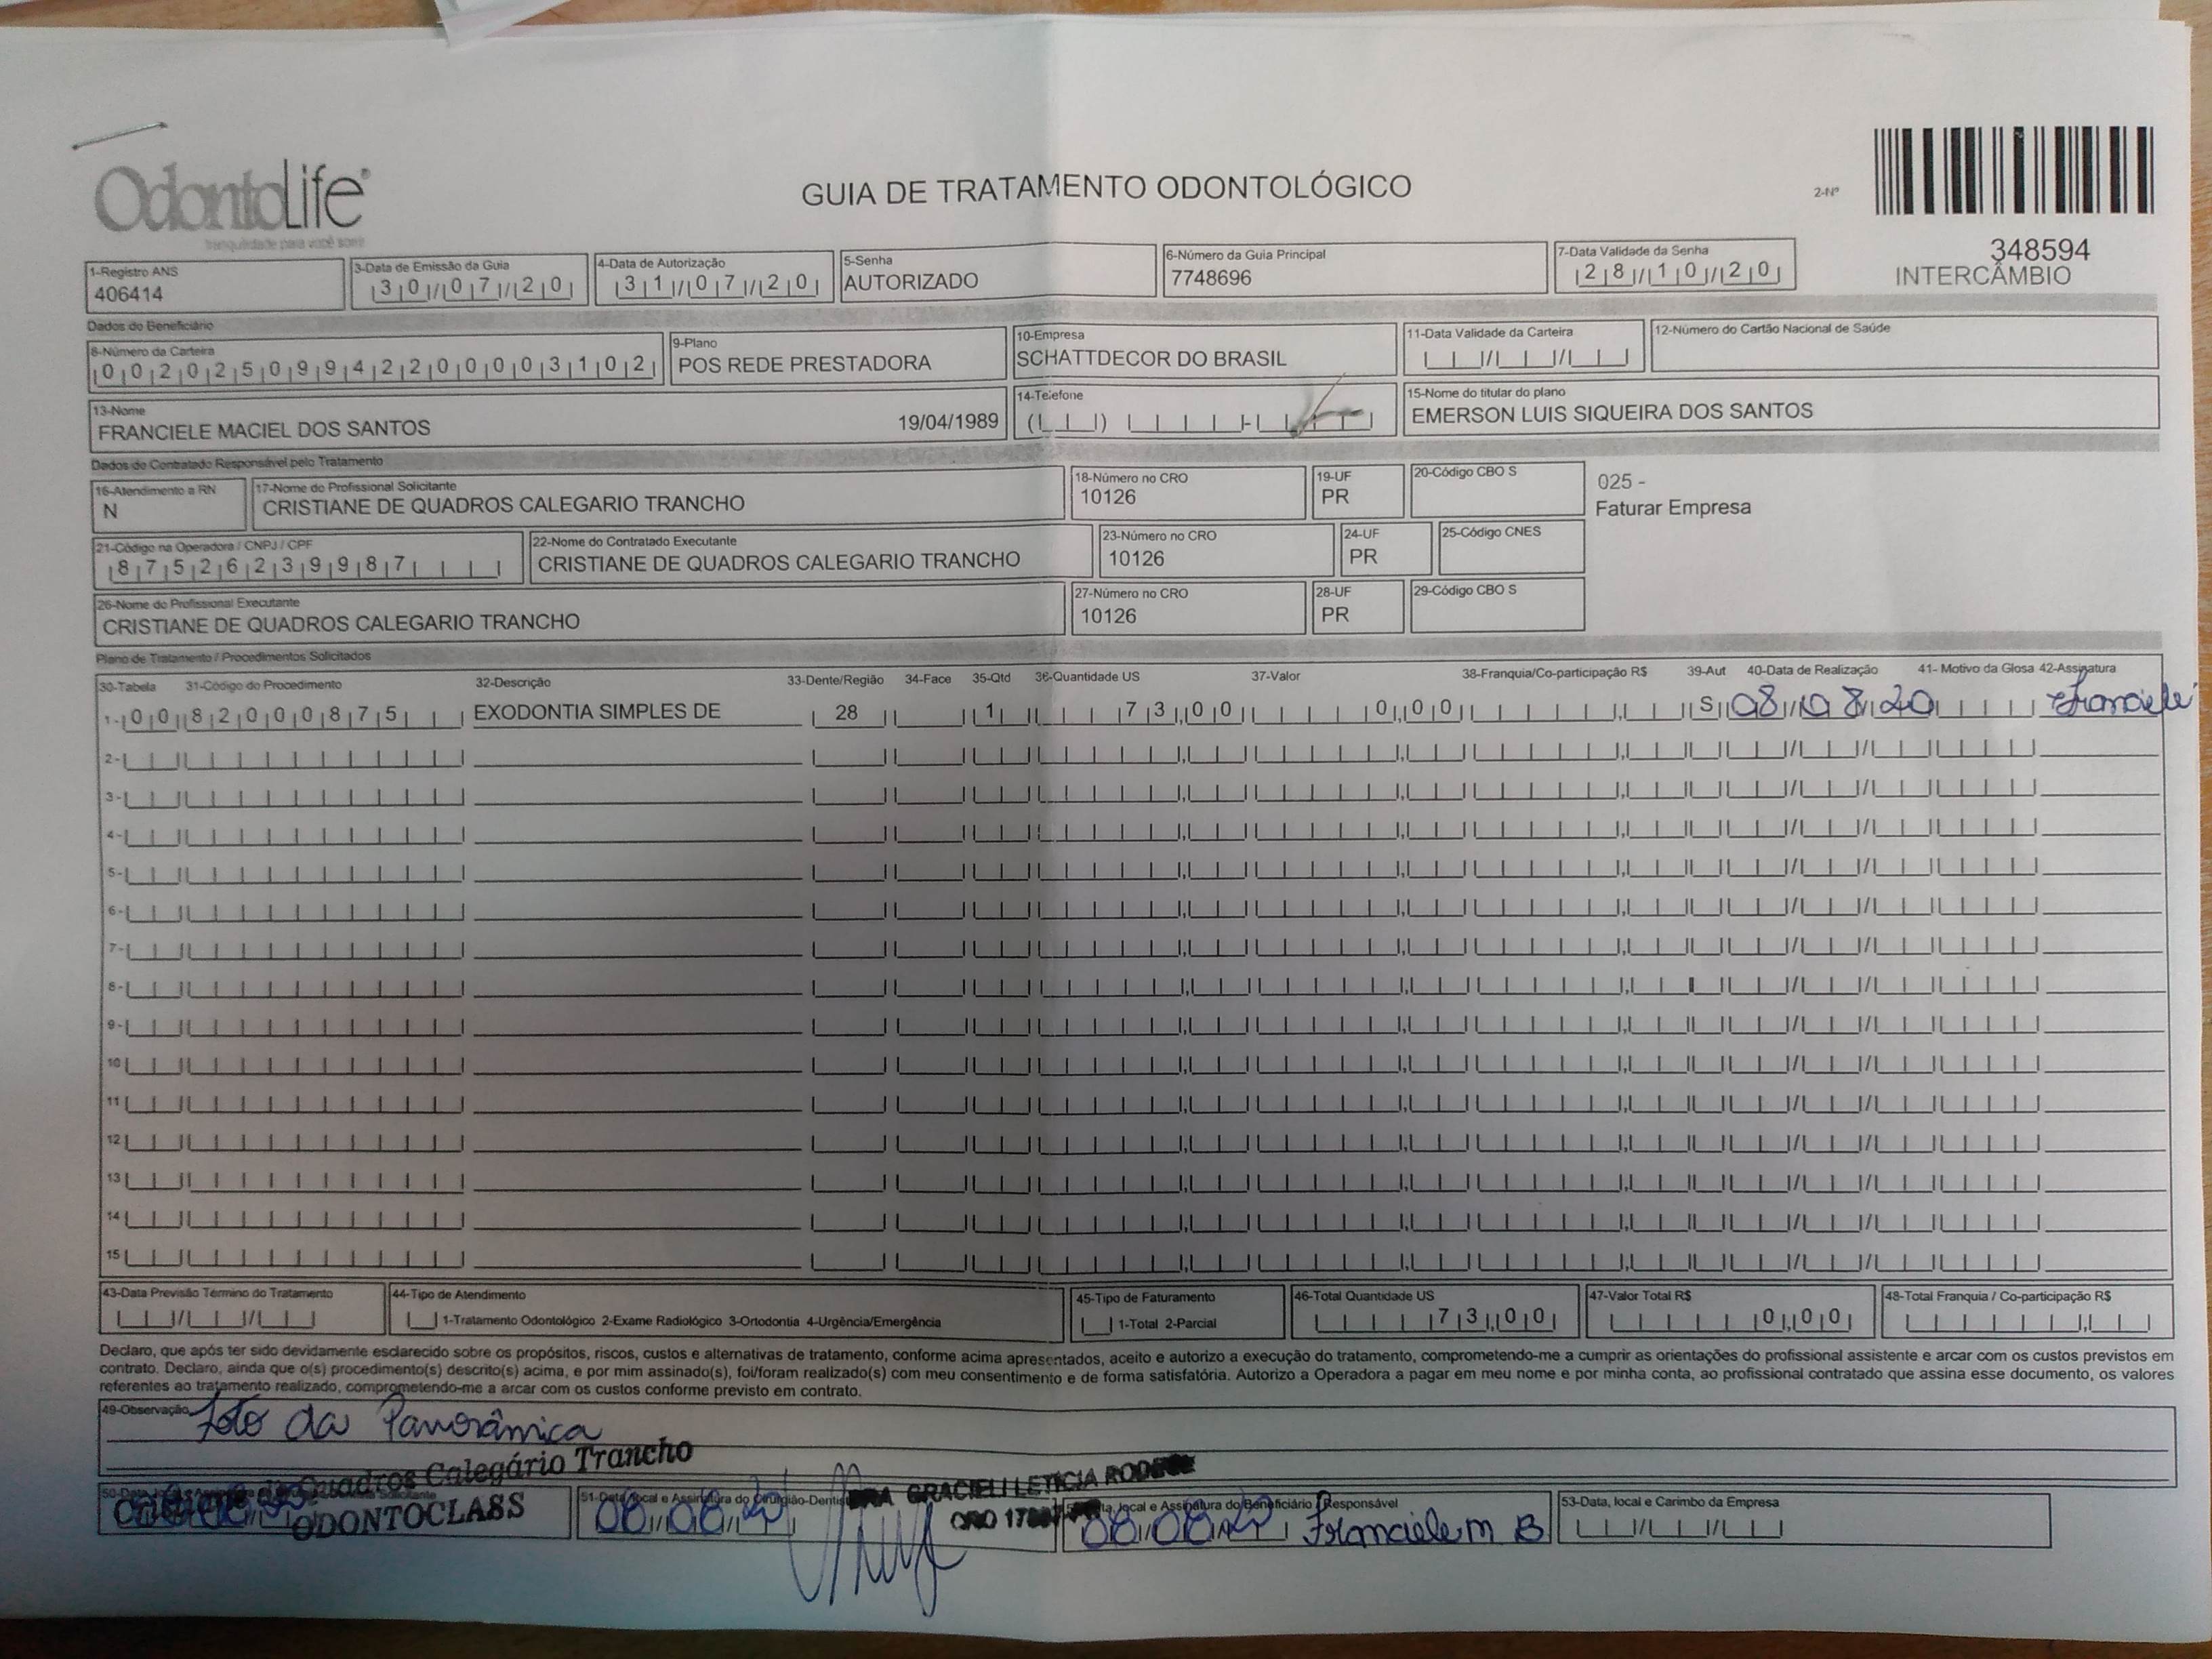 OdontoLife®
tranquilidade para você sorrir
GUIA DE TRATAMENTO ODONTOLÓGICO
2-Nº
348594
INTERCÂMBIO
1-Registro ANS
406414
3-Data de Emissão da Guia
30/07/20
4-Data de Autorização
31/07/20
5-Senha
AUTORIZADO
6-Número da Guia Principal
7748696
7-Data Validade da Senha
28/10/20
Dados do Beneficiário
8-Número da Carteira
00202509942200003102
9-Plano
POS REDE PRESTADORA
10-Empresa
SCHATTDECOR DO BRASIL
11-Data Validade da Carteira
12-Número do Cartão Nacional de Saúde
13-Nome
FRANCIELE MACIEL DOS SANTOS 19/04/1989
14-Telefone
15-Nome do titular do plano
EMERSON LUIS SIQUEIRA DOS SANTOS
Dados do Contratado Responsável pelo Tratamento
16-Atendimento a RN
N
17-Nome do Profissional Solicitante
CRISTIANE DE QUADROS CALEGARIO TRANCHO
18-Número no CRO
10126
19-UF
PR
20-Código CBO S
025 -
Faturar Empresa
21-Código na Operadora / CNPJ / CPF
87526239987
22-Nome do Contratado Executante
CRISTIANE DE QUADROS CALEGARIO TRANCHO
23-Número no CRO
10126
24-UF
PR
25-Código CNES
26-Nome do Profissional Executante
CRISTIANE DE QUADROS CALEGARIO TRANCHO
27-Número no CRO
10126
28-UF
PR
29-Código CBO S
Plano de Tratamento / Procedimentos Solicitados
30-Tabela 31-Código do Procedimento 32-Descrição 33-Dente/Região 34-Face 35-Qtd 36-Quantidade US 37-Valor 38-Franquia/Co-participação R$ 39-Aut 40-Data de Realização 41- Motivo da Glosa 42-Assinatura
1- 00 82000875 EXODONTIA SIMPLES DE 28 1 73,00 0,00 S 08/08/20 Franciele
2-
3-
4-
5-
6-
7-
8-
9-
10
11
12
13
14
15
43-Data Previsão Término do Tratamento
44-Tipo de Atendimento
1-Tratamento Odontológico 2-Exame Radiológico 3-Ortodontia 4-Urgência/Emergência
45-Tipo de Faturamento
1-Total 2-Parcial
46-Total Quantidade US
73,00
47-Valor Total R$
0,00
48-Total Franquia / Co-participação R$
Declaro, que após ter sido devidamente esclarecido sobre os propósitos, riscos, custos e alternativas de tratamento, conforme acima apresentados, aceito e autorizo a execução do tratamento, comprometendo-me a cumprir as orientações do profissional assistente e arcar com os custos previstos em
contrato. Declaro, ainda que o(s) procedimento(s) descrito(s) acima, e por mim assinado(s), foi/foram realizado(s) com meu consentimento e de forma satisfatória. Autorizo a Operadora a pagar em meu nome e por minha conta, ao profissional contratado que assina esse documento, os valores
referentes ao tratamento realizado, comprometendo-me a arcar com os custos conforme previsto em contrato.
49-Observação
Foto da Panorâmica
Quadros Calegário Trancho
ODONTOCLASS
51-Data, local e Assinatura do Cirurgião-Dentista
08/08/20
DRA GRACIELI LETICIA
CRO
local e Assinatura do Beneficiário / Responsável
08/08/20 Franciele m B
53-Data, local e Carimbo da Empresa